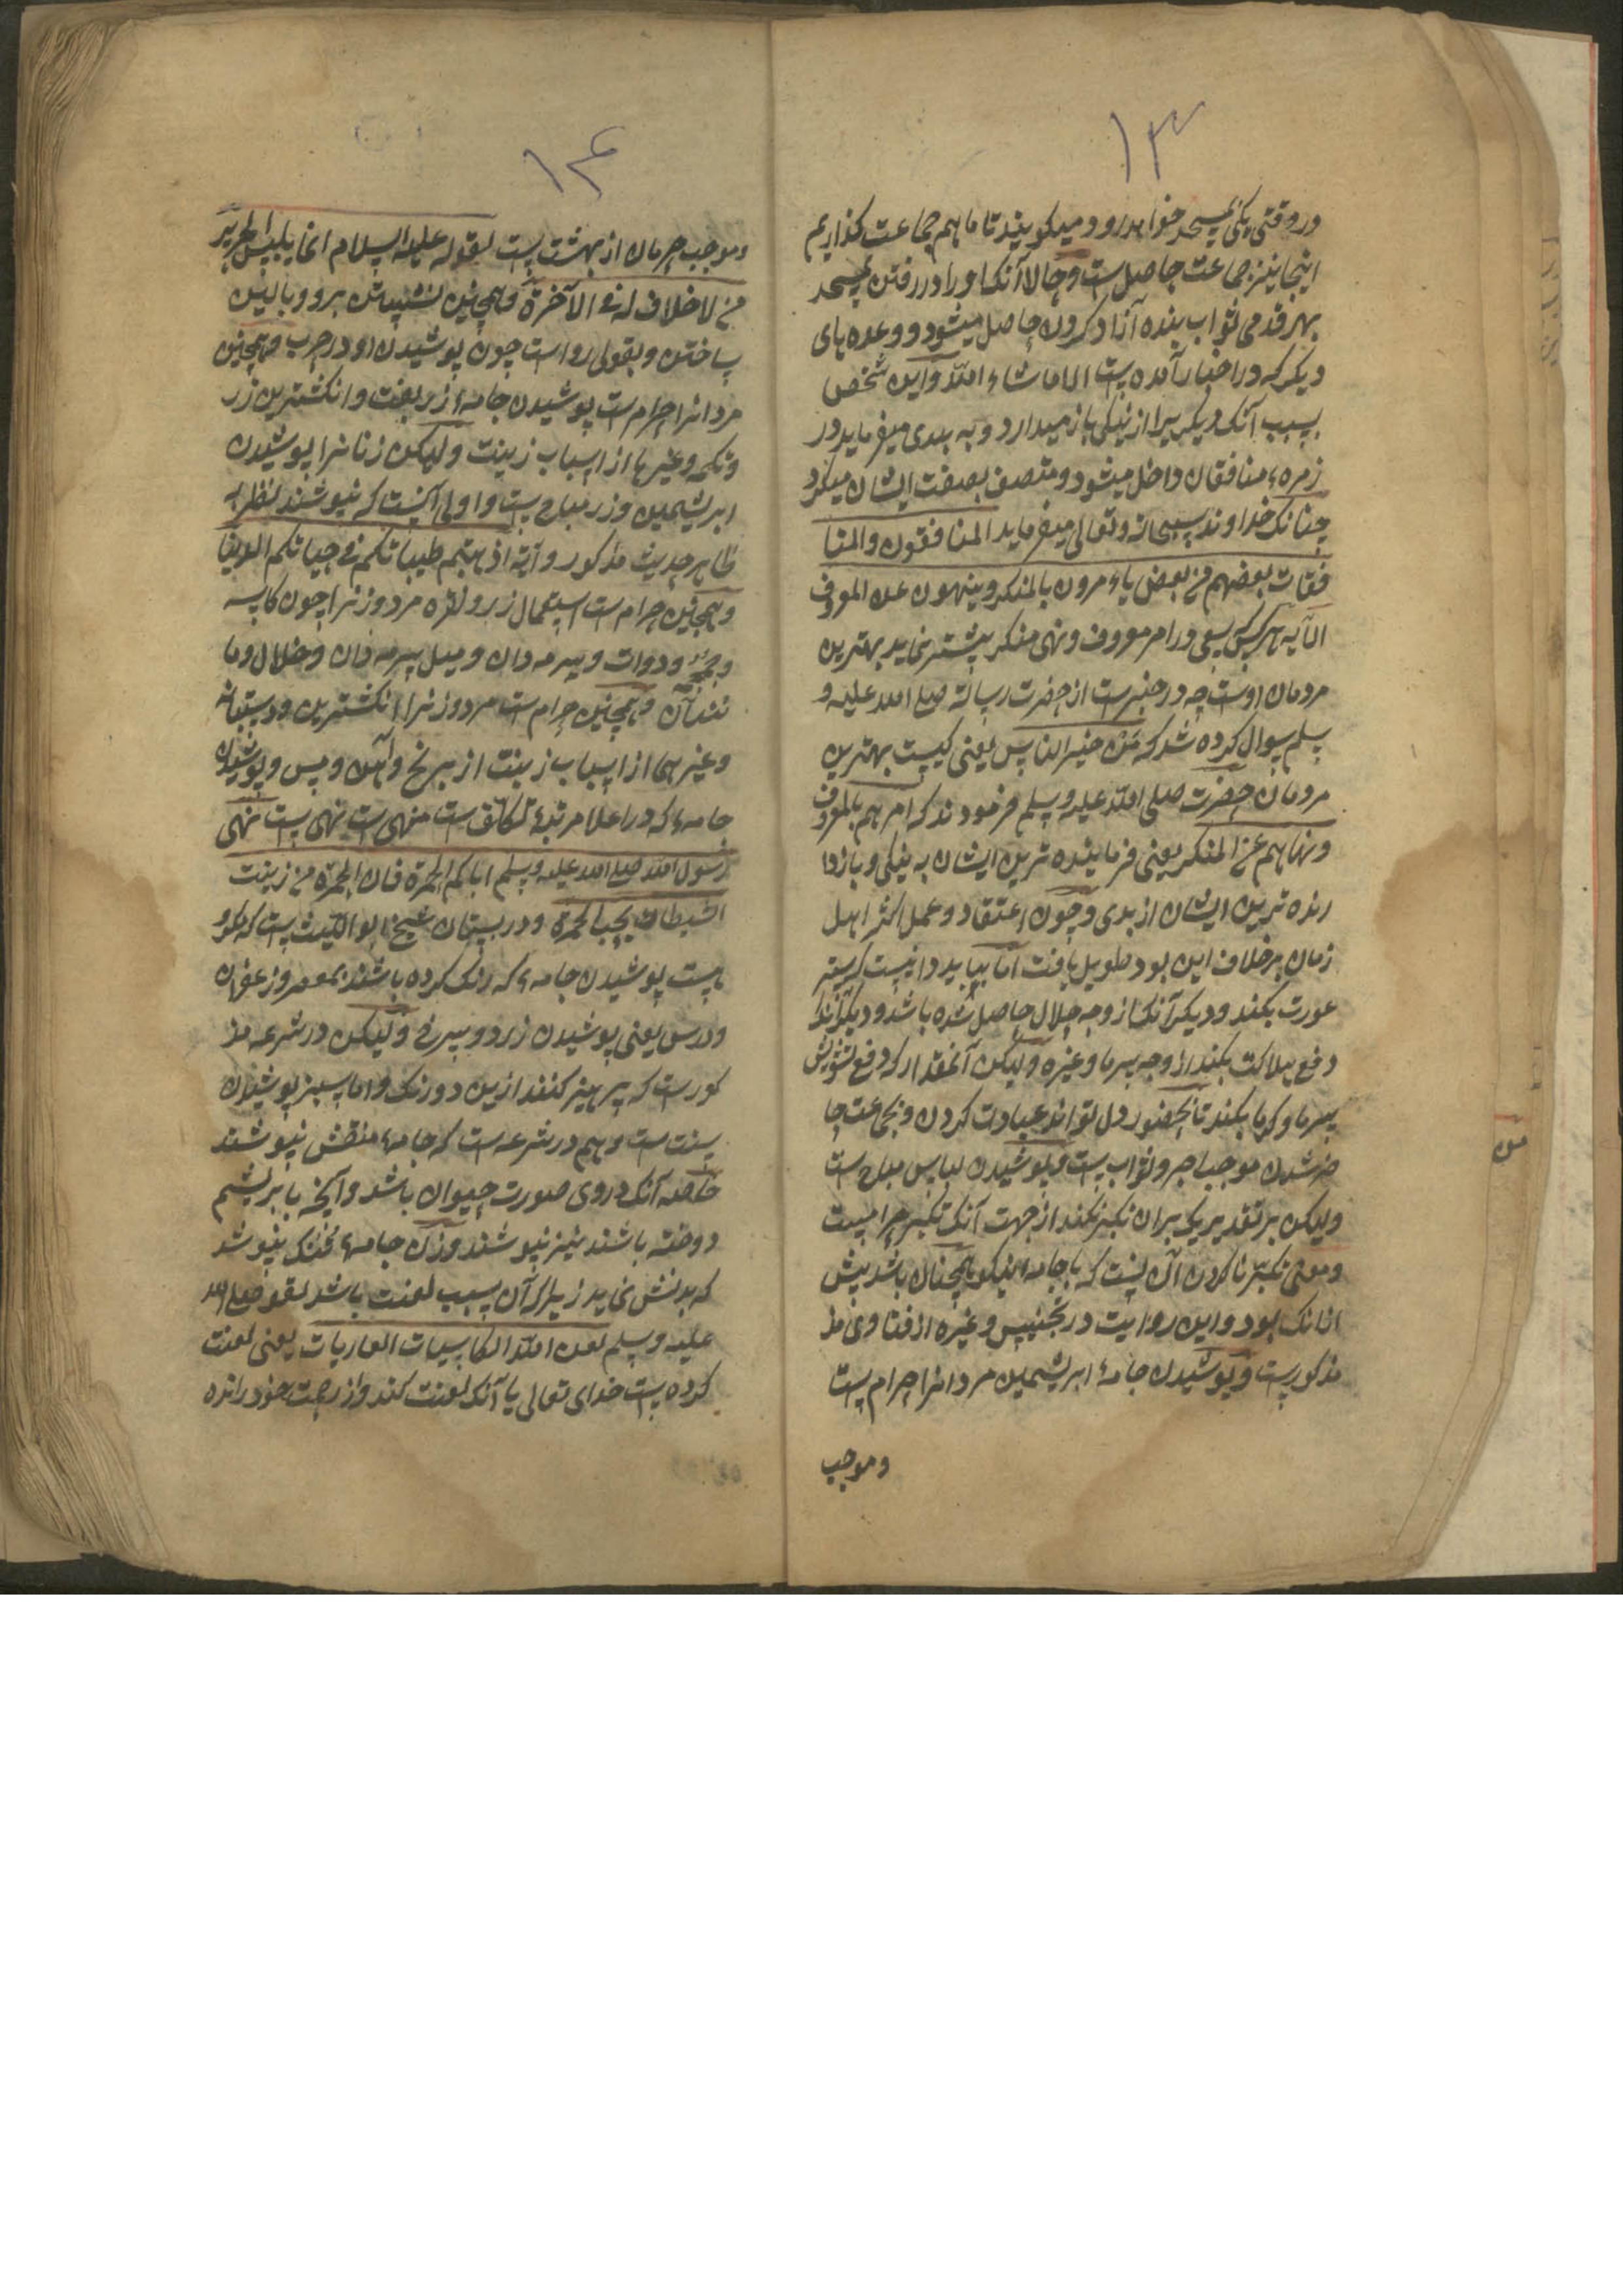 ۱۳
در وقتی یکی بمسجد خواهد رود و میکویند تا ما هم جماعت کذاریم
اینجا نیز جماعت حاصلست و حالا آنکه او را در رفتن بمسجد
بهر قدمی ثواب بنده آزاد کردن حاصل میشود و وعده های
دیکر که در اخبار آمده است الا ماشاء الله و این شخص
بسبب آنکه دیکریرا از نیکی باز میدارد و به بدی میفرماید در
زمرهء منافقان داخل میشود و متصف بصفت ایشان میکردد
چنانکه خداوند سبحانه و تعالی میفرماید المنافقون والمنا
فقات بعضهم من بعض یاءمرون بالمنکر وینهون عن المعروف
الآیه هر کس سعی در امر معروف و نهی منکر بیشتر نماید بهترین
مردمان اوست چه در خبرست از حضرت رسالت صلی الله علیه و
سلم سوال کرده شد که مَنْ خیر الناس یعنی کیست بهترین
مردمان حضرت صلی الله علیه وسلم فرمودند که امرهم بالمعروف
ونهاهم عن المنکر یعنی فرماینده ترین ایشان به نیکی و بازدا
رنده ترین ایشان از بدی و چون اعتقاد و عمل اکثر اهل
زمان برخلاف این بود طویل یافت اما بباید دانیست که ستر
عورت بکند و دیکر آنکه از وجه حلال حاصل شده باشد و دیکر آنکه
دفع هلاکت بکند از وجه سرما و غیره ولیکن آنمقدار که دفع تشویش
سرما و کرما بکند تا بحضور دل تواند عبادت کردن و بجماعت حا
ضر شدن موجب اجر و ثواب است و پوشیدن لباس مباح ست
ولیکن بر تقدیریکه بر ان تکبر نکند از جهت آنکه تکبر حرامست
و معنی تکبر نا کردن آن است که با جامه نیکو همچنان باشد پیش
ازانکه بود و این روایت در تجنیس و غیره از فتاوی مذ
مذکورست و پوشیدن جامهٔ ابریشمین مردانرا حرام است
و موجب
۱۴
و موجب حرمان از بهشت است لقوله علیه السلام انما یلبس الحریر
من لا خلاق له فی الآخرة و همچنین نشستن برو و بالین
ساختن و بقولی رواست چون پوشیدن او در حرب و همچنین
مردانرا حرامست پوشیدن جامهء زربفت و انکشترین زر
و تکمه و غیرها از اسباب زینت ولیکن زنانرا پوشیدن
ابریشمین و زر مباح است و اولی آنست که نپوشند نظر به
ظاهر حدیث مذکور و آیه اذهبتم طیباتکم فی حیاتکم الدنیا
و همچنین حرامست استعمال زر و نقره مرد و زنرا چون کاسه
و مجمر و دوات و سرمه دان و میل سرمه دان و خلال و ما
نند آن و همچنین حرام ست مرد و زنرا انکشترین و دستوانه
و غیرهما از اسباب زینت از برنج و آهن و مس و پوشیدن
جامهء که در اعلا مرتبهٔ تکلف ست منهی ست نهی است نهی
رسول الله صلی الله علیه وسلم ایاکم الحمرة فان الحمرة من زینت
الشیطان یحب الحمرة و در بستان شیخ ابو اللیث است که مکرو
هست پوشیدن جامهء که رنک کرده باشند بمعصر و زعفران
و ورس یعنی پوشیدن زرد و سرخ ولیکن در شرعه مذ
کورست که پرهیز کنند ازین دو رنک و اما سبز پوشیدن
سنت ست و هم در شرعه ست که جامهء منقش نپوشند
خاصه آنکه در وی صورت حیوان باشد و آنچه با بریشم
دوخته باشند نیز نپوشند و زن جامهء تُنُک نپوشد
که بدنش نماید زیرا که آن سبب لعنت باشد لقوله صلی الله
علیه وسلم لعن الله الکاسیات العاریات یعنی لعنت
کرده است خدای تعالی یا آنکه لعنت کند و از رحمت خود رانده